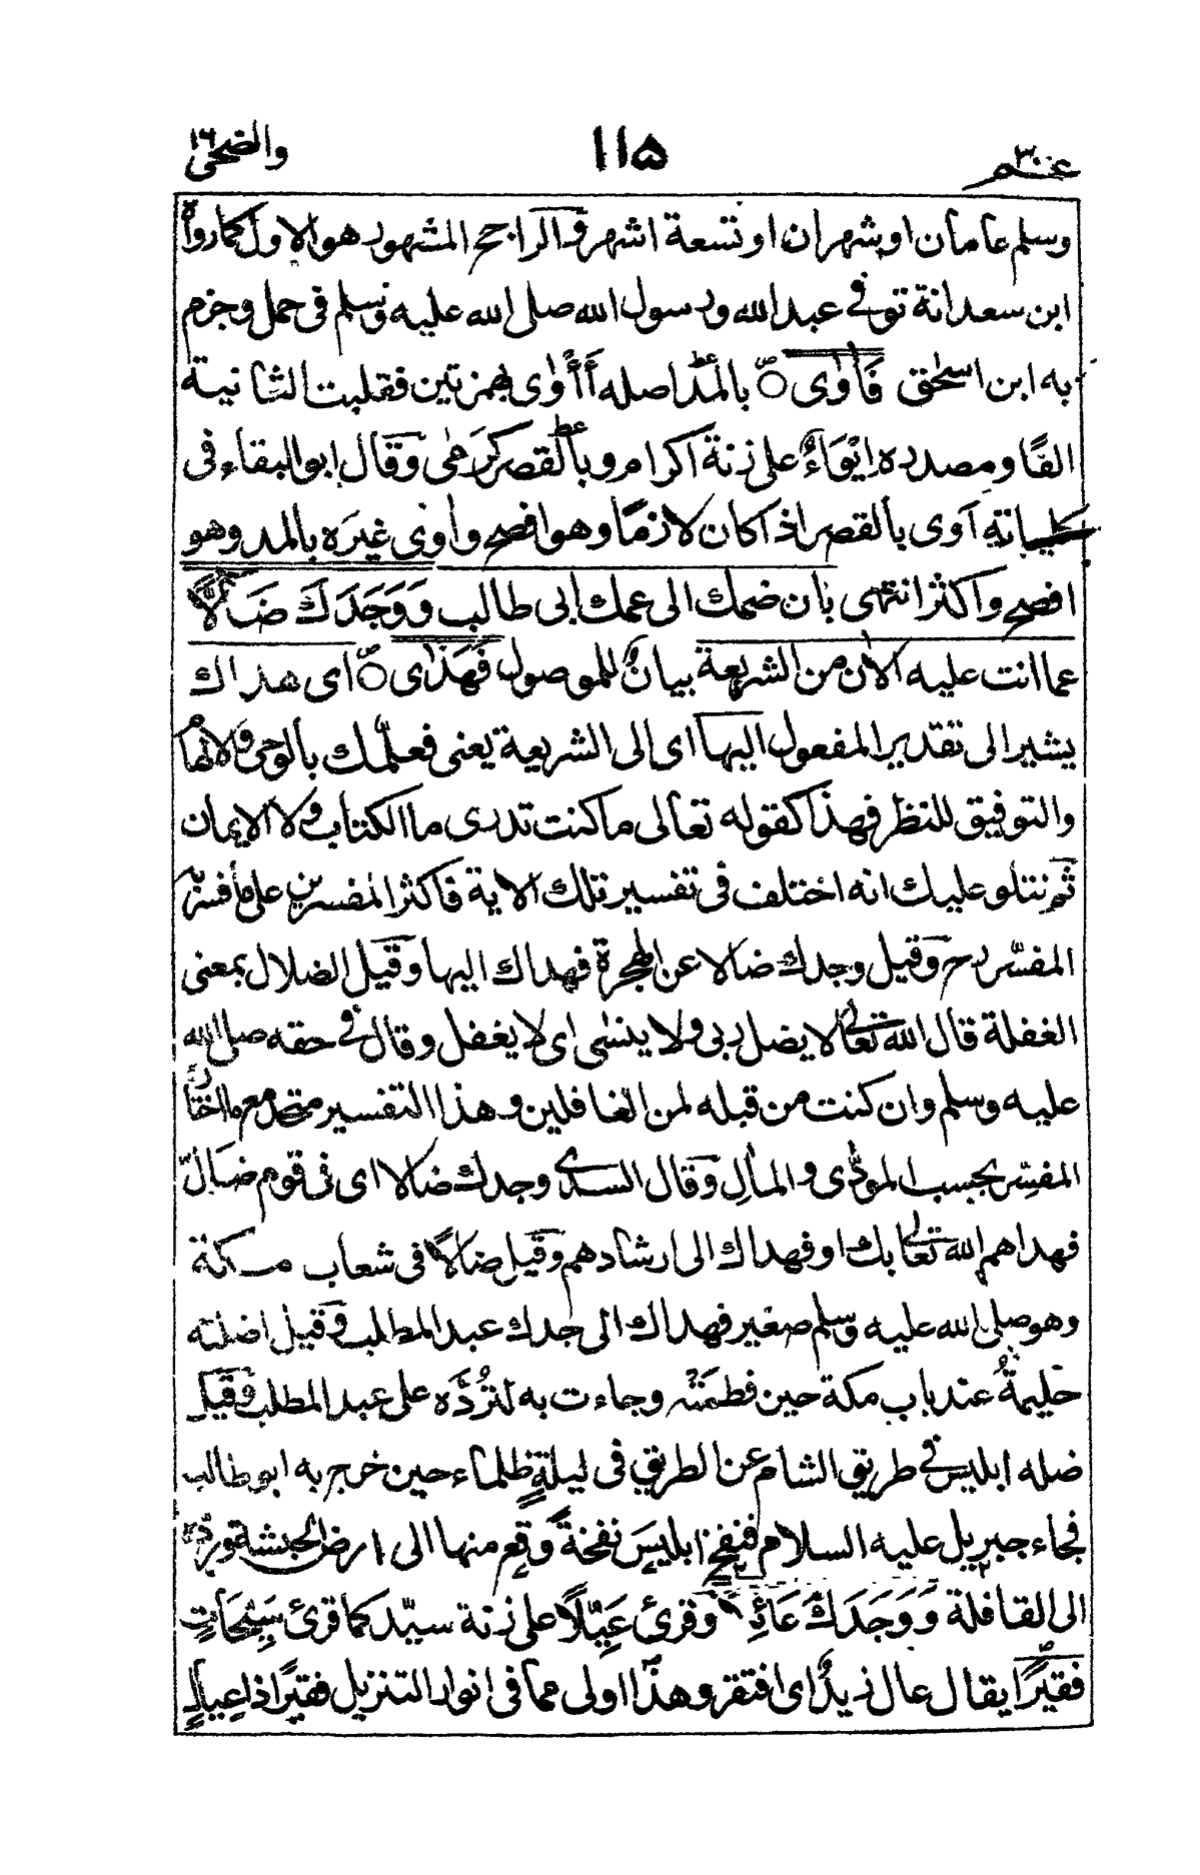 عم ٣٠ ١١٥ والضحى
وسلم عامان او شهران او تسعة اشهر والراجح المشهور هو الاول كما رواه
ابن سعد انة توفى عبد الله ورسول الله صلى الله عليه وسلم فى حمل وجزم
به ابن اسحٰق فَاٰوٰى ۝ بالمد اصله أَأْوٰى بهمزتين فقلبت الثانية
الفًا ومصدره اِيْوَاءٌ على زنة اكرام وبالقصر كَرَمٰى وقال ابو البقاء فى
كلياته آوى بالقصر اذا كان لازمًا وهو افصح وأوٰى غيرَه بالمد وهو
افصح واكثر انتهى بان ضمك الى عمك ابى طالب وَوَجَدَكَ ضَالًّا
عما انت عليه الاٰن من الشريعة بيانٌ للموصول فَهَدٰى ۝ اى هداك
يشير الى تقدير المفعول اليها اى الى الشريعة يعنى فعلّمك بالوحى والالهام
والتوفيق للنظر فهذا كقوله تعالى ما كنت تدرى ما الكتاب ولا الايمان
ثم نتلو عليك انه اختلف فى تفسير تلك الاية فاكثر المفسرين على ما فسره
المفسّر رح وقيل وجدك ضالا عن الهجرة فهداك اليها وقيل الضلال بمعنى
الغفلة قال الله تعالى لا يضل ربى ولا ينسٰى اى لا يغفل وقال فى حقه صلى الله
عليه وسلم وان كنت من قبله لمن الغافلين وهذا التفسير متحد مع ما اختاره
المفسِّر بحسب المؤدّى والمآلِ وقال السدى وجدك ضالا اى فى قوم ضَالّ
فهداهم الله تعالى بك او فهداك الى ارشادهم وقيل ضالًا فى شعاب مكة
وهو صلى الله عليه وسلم صغير فهداك الى جدك عبد المطلب وقيل اضلته
حليمةُ عند باب مكة حين فطمته وجاءت به لتردّه على عبد المطلب وقيل
ضله ابليس فى طريق الشام عن الطريق فى ليلةٍ ظلماء حين خرج به ابو طالب
فجاء جبريل عليه السلام فنفخ ابليسَ نفخةً وقع منها الى ارض الحبشة ورده
الى القافلة وَوَجَدَكَ عَائِلًا وقرئ عَيِّلًا على زنة سيّد كما قرئ سَيِّحَاتٍ
فقيرًا يقال عال زيدٌ اى افتقر وهذا اولى مما فى انوار التنزيل فقيرًا ذا عيالٍ